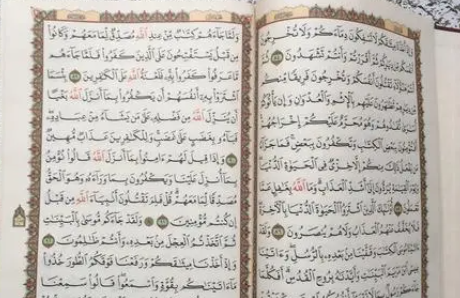 وَإِذْ أَخَذْنَا مِيثَٰقَكُمْ لَا تَسْفِكُونَ دِمَآءَكُمْ وَلَا تُخْرِجُونَ
أَنفُسَكُم مِّن دِيَٰرِكُمْ ثُمَّ أَقْرَرْتُمْ وَأَنتُمْ تَشْهَدُونَ ٨٤
ثُمَّ أَنتُمْ هَٰٓؤُلَآءِ تَقْتُلُونَ أَنفُسَكُمْ وَتُخْرِجُونَ فَرِيقًا مِّنكُم
مِّن دِيَٰرِهِمْ تَظَٰهَرُونَ عَلَيْهِم بِٱلْإِثْمِ وَٱلْعُدْوَٰنِ وَإِن يَأْتُوكُمْ
أُسَٰرَىٰ تُفَٰدُوهُمْ وَهُوَ مُحَرَّمٌ عَلَيْكُمْ إِخْرَاجُهُمْ
أَفَتُؤْمِنُونَ بِبَعْضِ ٱلْكِتَٰبِ وَتَكْفُرُونَ بِبَعْضٍ فَمَا جَزَآءُ
مَن يَفْعَلُ ذَٰلِكَ مِنكُمْ إِلَّا خِزْىٌ فِى ٱلْحَيَوٰةِ ٱلدُّنْيَا
وَيَوْمَ ٱلْقِيَٰمَةِ يُرَدُّونَ إِلَىٰٓ أَشَدِّ ٱلْعَذَابِ وَمَا ٱللَّهُ بِغَٰفِلٍ عَمَّا
تَعْمَلُونَ ٨٥ أُو۟لَٰٓئِكَ ٱلَّذِينَ ٱشْتَرَوُا۟ ٱلْحَيَوٰةَ ٱلدُّنْيَا بِٱلْءَاخِرَةِ
فَلَا يُخَفَّفُ عَنْهُمُ ٱلْعَذَابُ وَلَا هُمْ يُنصَرُونَ ٨٦ وَلَقَدْ ءَاتَيْنَا
مُوسَى ٱلْكِتَٰبَ وَقَفَّيْنَا مِنۢ بَعْدِهِۦ بِٱلرُّسُلِ وَءَاتَيْنَا
عِيسَى ٱبْنَ مَرْيَمَ ٱلْبَيِّنَٰتِ وَأَيَّدْنَٰهُ بِرُوحِ ٱلْقُدُسِ أَفَكُلَّمَا
وَلَمَّا جَآءَهُمْ كِتَٰبٌ مِّنْ عِندِ ٱللَّهِ مُصَدِّقٌ لِّمَا مَعَهُمْ وَكَانُوا۟
مِن قَبْلُ يَسْتَفْتِحُونَ عَلَى ٱلَّذِينَ كَفَرُوا۟ فَلَمَّا جَآءَهُم
مَّا عَرَفُوا۟ كَفَرُوا۟ بِهِۦ فَلَعْنَةُ ٱللَّهِ عَلَى ٱلْكَٰفِرِينَ ٨٩ بِئْسَمَا
ٱشْتَرَوْا۟ بِهِۦٓ أَنفُسَهُمْ أَن يَكْفُرُوا۟ بِمَآ أَنزَلَ ٱللَّهُ بَغْيًا
أَن يُنَزِّلَ ٱللَّهُ مِن فَضْلِهِۦ عَلَىٰ مَن يَشَآءُ مِنْ عِبَادِهِۦ
فَبَآءُو بِغَضَبٍ عَلَىٰ غَضَبٍ وَلِلْكَٰفِرِينَ عَذَابٌ مُّهِينٌ
٩٠ وَإِذَا قِيلَ لَهُمْ ءَامِنُوا۟ بِمَآ أَنزَلَ ٱللَّهُ قَالُوا۟ نُؤْمِنُ
بِمَآ أُنزِلَ عَلَيْنَا وَيَكْفُرُونَ بِمَا وَرَآءَهُۥ وَهُوَ ٱلْحَقُّ
مُصَدِّقًا لِّمَا مَعَهُمْ قُلْ فَلِمَ تَقْتُلُونَ أَنۢبِيَآءَ ٱللَّهِ مِن قَبْلُ
إِن كُنتُم مُّؤْمِنِينَ ٩١ وَلَقَدْ جَآءَكُم مُّوسَىٰ بِٱلْبَيِّنَٰتِ
ثُمَّ ٱتَّخَذْتُمُ ٱلْعِجْلَ مِنۢ بَعْدِهِۦ وَأَنتُمْ ظَٰلِمُونَ ٩٢
وَإِذْ أَخَذْنَا مِيثَٰقَكُمْ وَرَفَعْنَا فَوْقَكُمُ ٱلطُّورَ خُذُوا۟
مَآ ءَاتَيْنَٰكُم بِقُوَّةٍ وَٱسْمَعُوا۟ قَالُوا۟ سَمِعْنَا